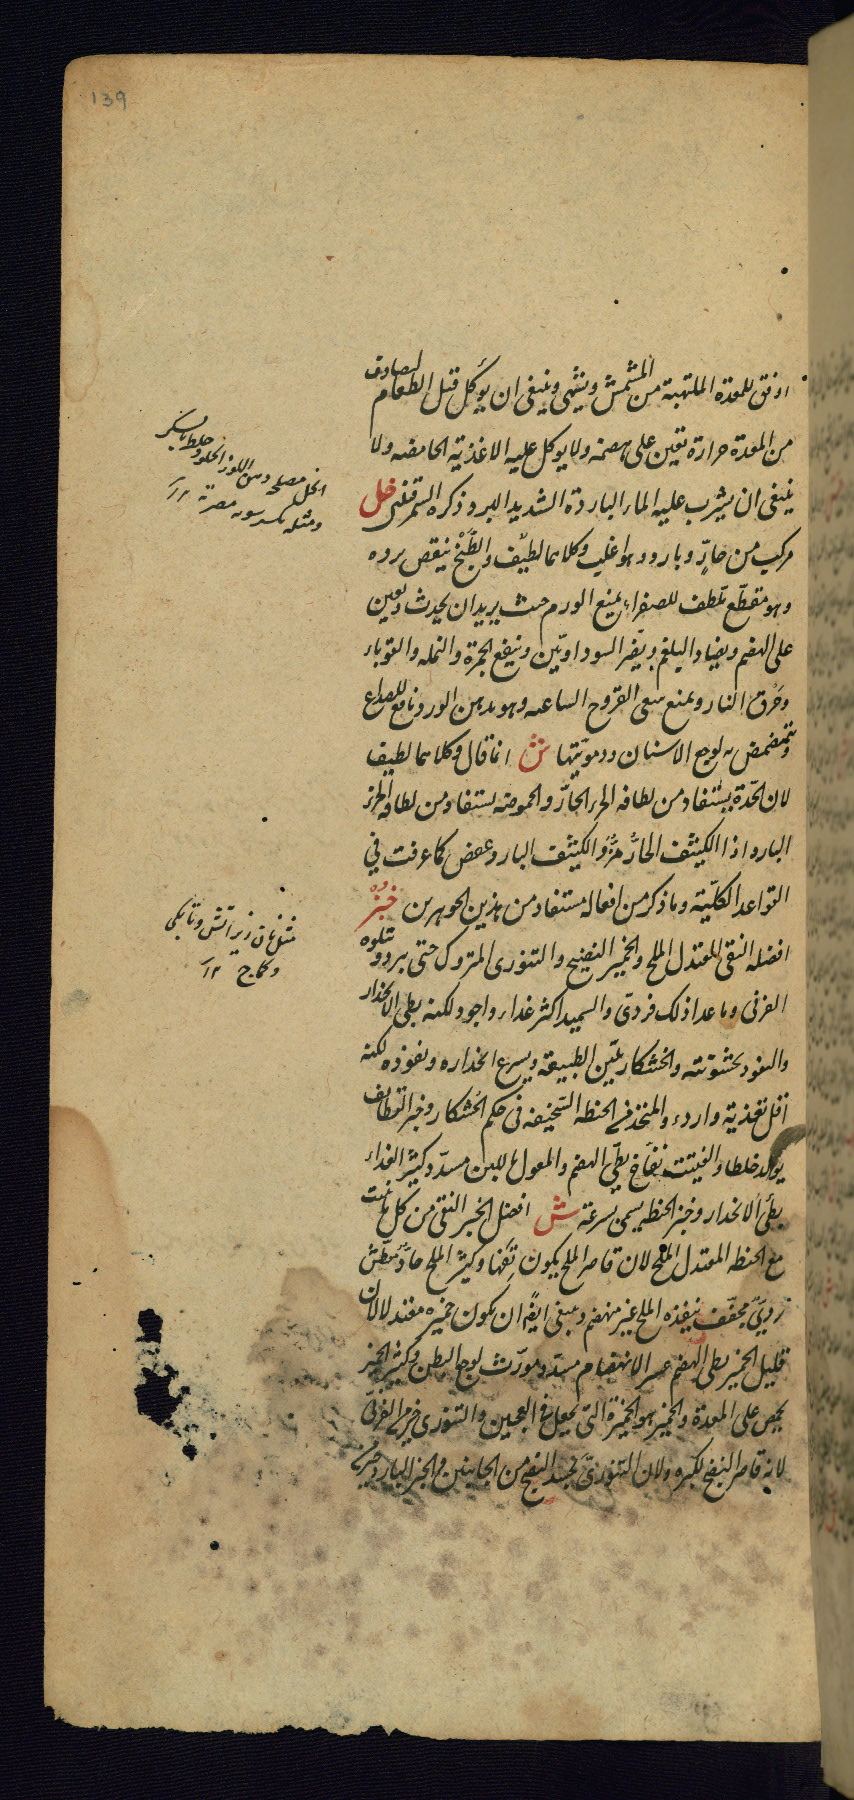 139
اوفق للمعدة الملتهبة من المشمش ويشهى وينبغى ان يؤكل قبل الطعام ليصادف
من المعدة حرارة تعين على هضمه ولا يوكل عليه الاغذية الحامضه ولا
ينبغى ان يشرب عليه الماء الباردة الشديد البرد ذكره السمرقندى خل
مركب من حارّ وبارد وهو اغلب وكلاهما لطيف والطبخ ينقص برده
وهو مقطّع ملطف للصفراء يمنع الورم حيث يريد ان يحدث ويعين
على الهضم ويضاد البلغم ويضر السوداويّين وينفع الجمرة والنمله والقوباء
وحَرْق النار ويمنع سعى القروح الساعيه وهو مع دهن الورد نافع للصداع
ويتمضمض به لوجع الاسنان ودمويّتها ش انما قال وكلاهما لطيف
لان الحّدة يستفاد من لطافه الجزء الحارّ والحموضه يستفاد من لطافه الجزء
البارد اذا الكثيف الحارّ مُرّ والكثيف البارد عفص كما عرفت في
القواعد الكلّيّة وما ذكر من افعاله مستفاد من هذين الجوهرين خبز
افضله النقى المعتدل الملح والخمير النضيج والتنورى المتروك حتى يبرد ويتلوه
الفرنى وما عدا ذلك فردىّ والسميد اكثر غذاء واجود لكنه بطى الانحدار
والنفوذ لخشونته والخشكار يليّن الطبيعة ويسرع انحداره ونفوذه لكنه
اقل تغذية واردء والمتخذ من الحنطه السخيفه فى حكم الخشكار وخبز القطايف
يولد خلطا والفتيت نفّاخ بطئ الهضم والمعمول باللبن مسدّد كثير الغذاء
بطئ الانحدار وخبز الحنطه يسمن بسرعة ش افضل الخبز النقى من كل نبت
مع الحنطه المعتدل الملح لان قاصر الملح يكون تَفِهًا وكثير الملح حادّ معطّش
ردىّ مجفّف ينفذه الملح غير منهضم وينبغى ايضًا ان يكون خميره معتدلا لان
قليل الخمير بطى الهضم عسر الانهضام مسدّد مورّث لوجع البطن وكثير الخمير
يحمض على المعدة والخمير هو الخميرة التى يجعل فى العجين والتنورى خير من الفرنىّ
لانه قاصر النضج لكبره ولان التنورىّ يجيد النضج من الجانبين والخبز البارد خير من
الخل مصلحه دهن اللوز الحلو وخلطه بالسكر
ومثله مضرته ١٢
مثل نان زير آتش وتابگى
وكماج ١٢